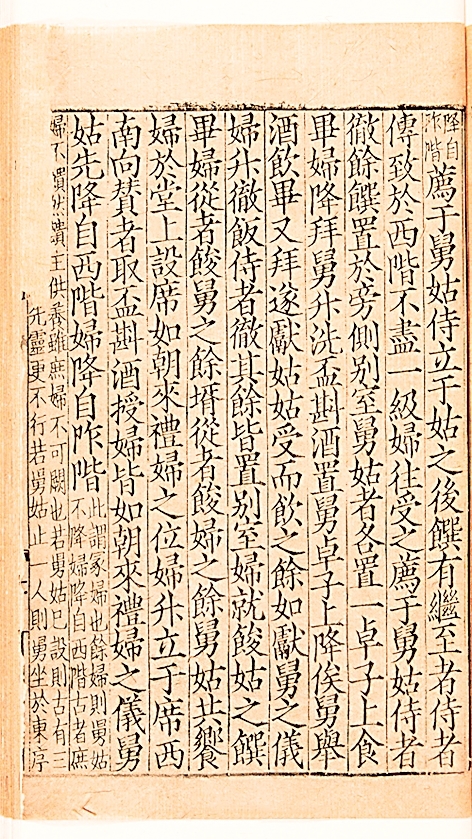 降自
阼階
薦于舅姑侍立于姑之後饌有繼至者侍者
傳致於西階不盡一級婦往受之薦于舅姑侍者
徹餘饌置於旁側别室舅姑者各置一卓子上食
畢婦降拜舅升洗盃斟酒置舅卓子上降俟舅舉
酒飲畢又拜遂獻姑姑受而飲之餘如獻舅之儀
婦升徹飯侍者徹其餘皆置别室婦就餕姑之饌
畢婦從者餕舅之餘壻從者餕婦之餘舅姑共饗
婦於堂上設席如朝來禮婦之位婦升立于席西
南向賛者取盃斟酒授婦皆如朝來禮婦之儀舅
姑先降自西階婦降自阼階
此謂冢婦也餘婦則舅姑
不降婦降自西階古者庶
婦不饋然饋主供養雖庶婦不可闕也若舅姑已設則古有三
先靈更不行若舅姑止一人則舅坐於東序